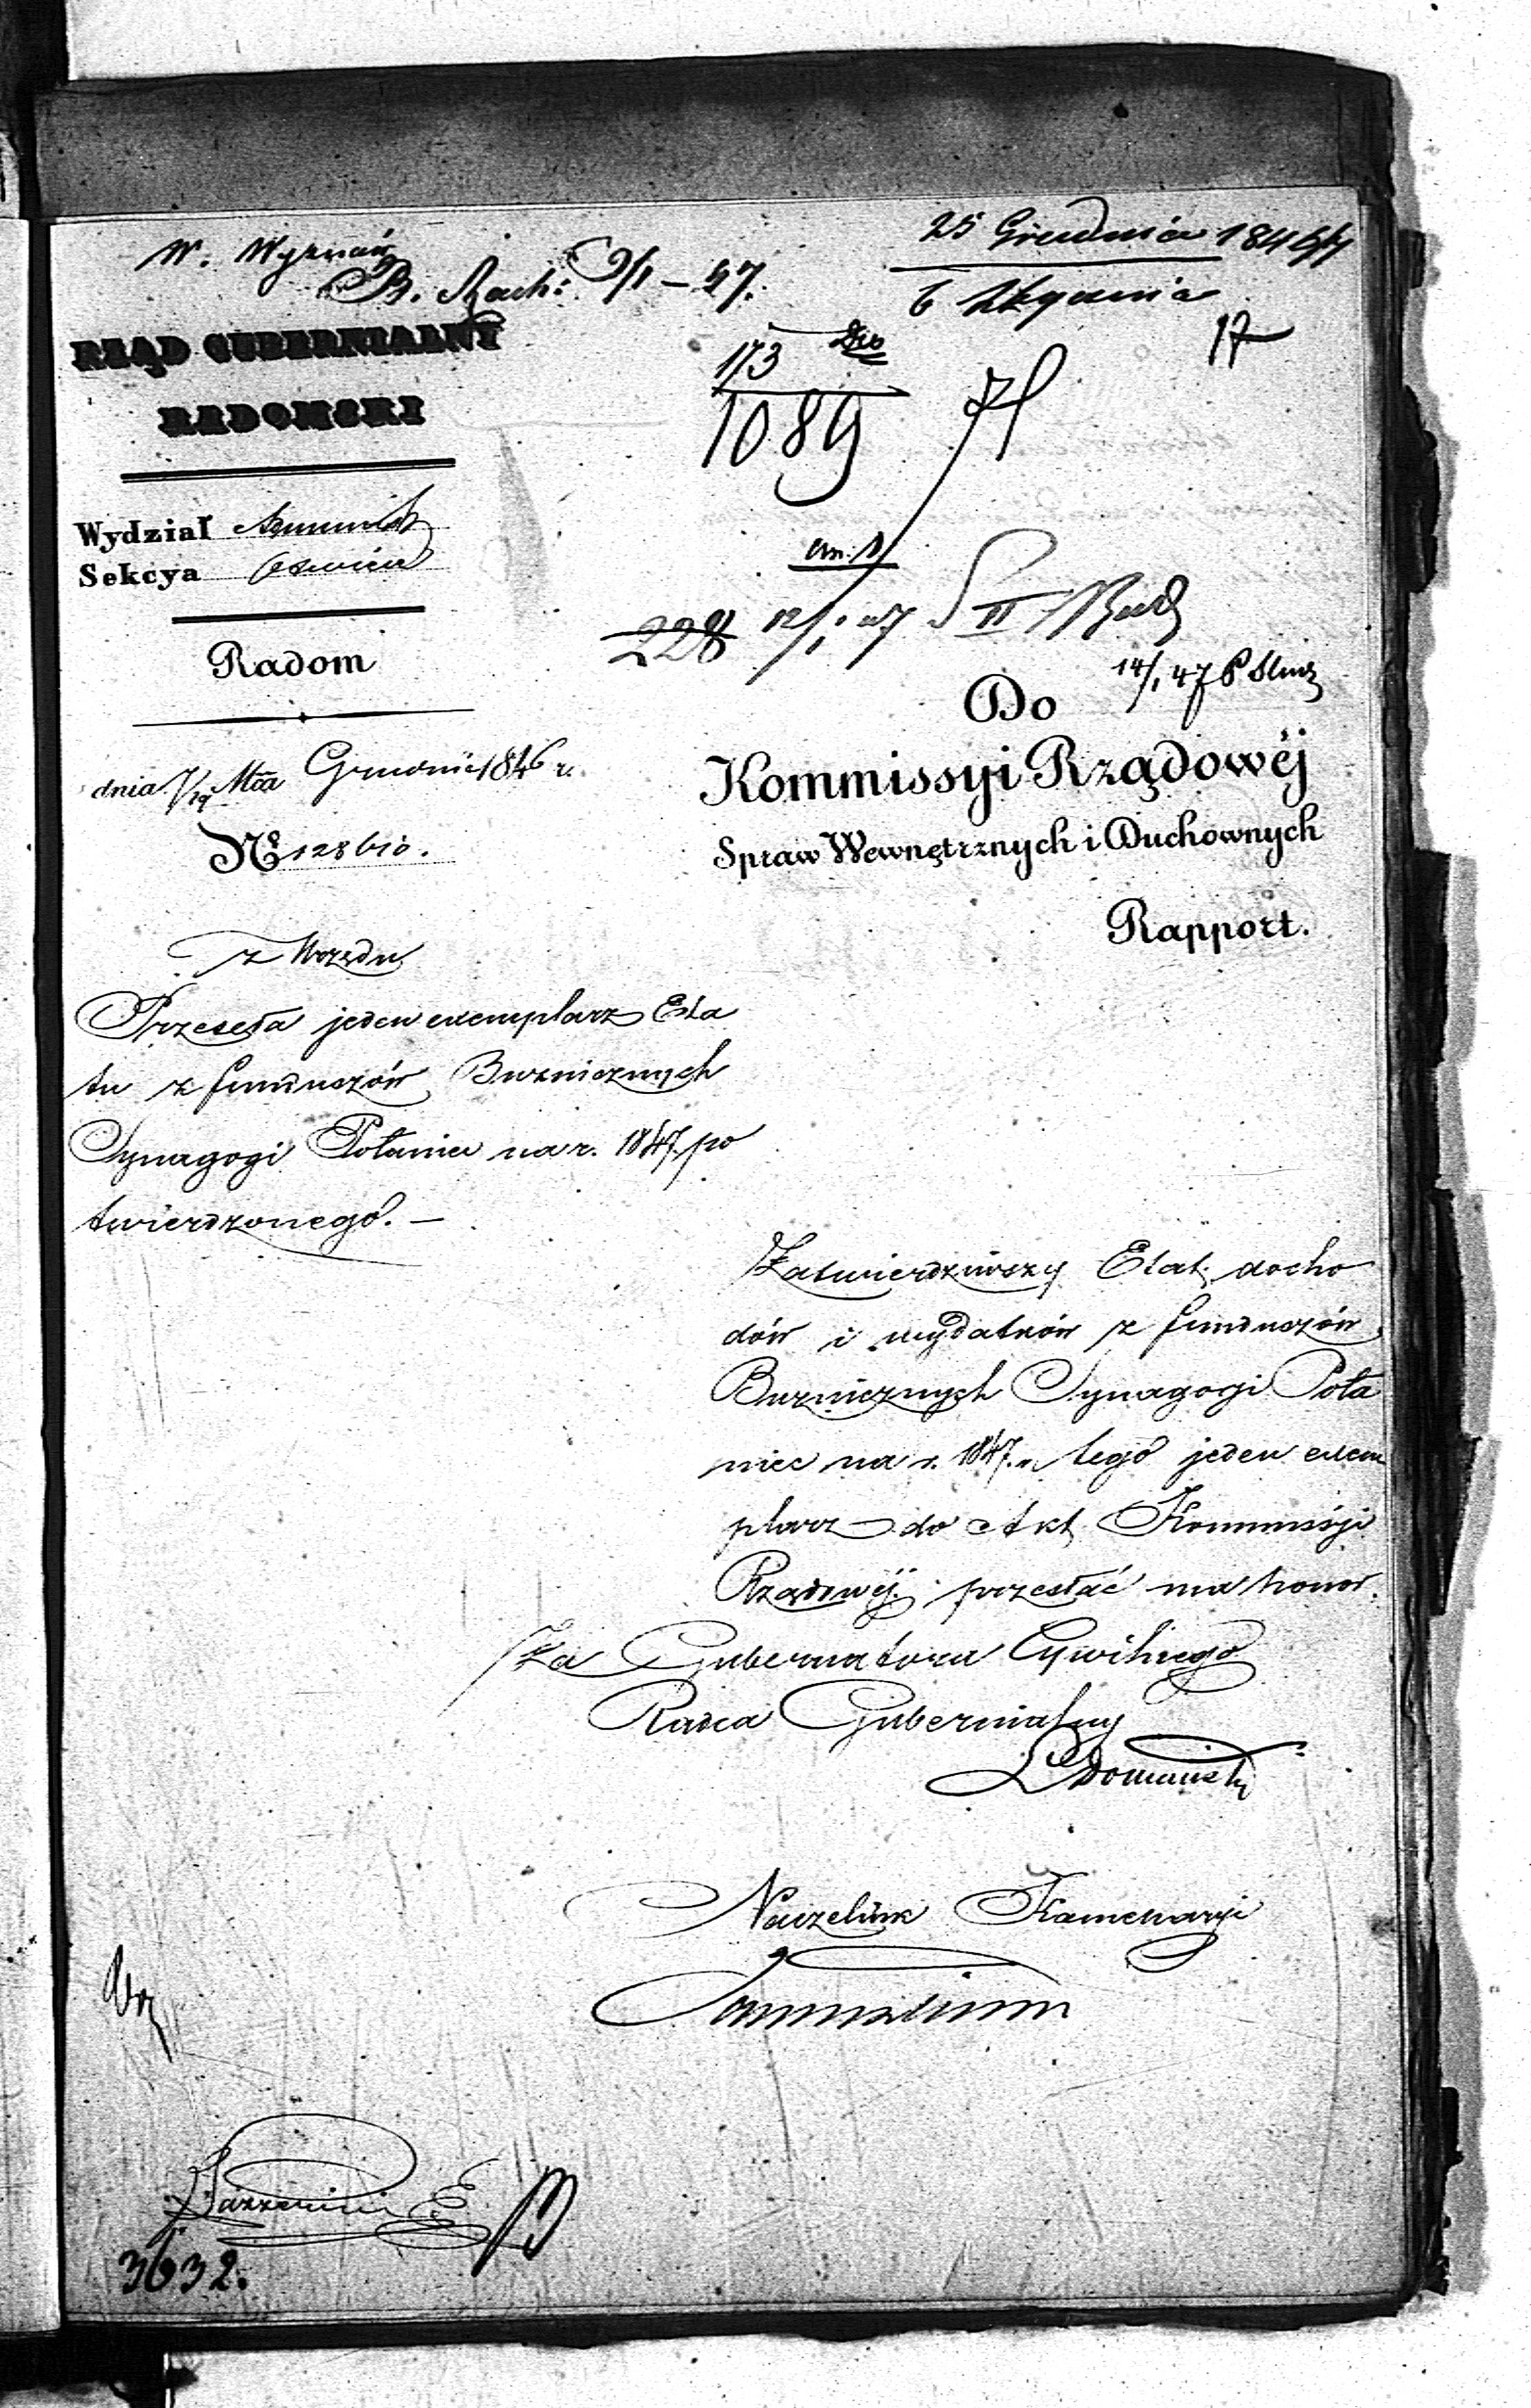 W. Wyznań
B. Rach: 9/1 – 47.
25 Grudnia 1846/7
6 Stycznia
17
RZĄD GUBERNIALNY
RADOMSKI
173
1089
Wydział
Sekcya
228 12/1 47 II
14/1 47
Radom
dnia 7/19 Mca Grudnia 1846 r.
No 128610.
Do
Kommissyi Rządowéj
Spraw Wewnętrznych i Duchownych
Rapport.
z Urzędu
Przeseła jeden exemplarz Eta
tu z funduszów Bużnicznych
Synagogi Połaniec na r. 1847. po
twierdzonego. –
Zatwierdziwszy Etat docho
dów i wydatków z funduszów
Bużnicznych Synagogi Poła
niec na r. 1847. tego jeden exem
plarz do Akt Kommissyi
Rządowéj przesłać ma honor.
Za Gubernatora Cywilnego
Radca Gubernialny
LDomański
Naczelnik Kancellaryi
3632.